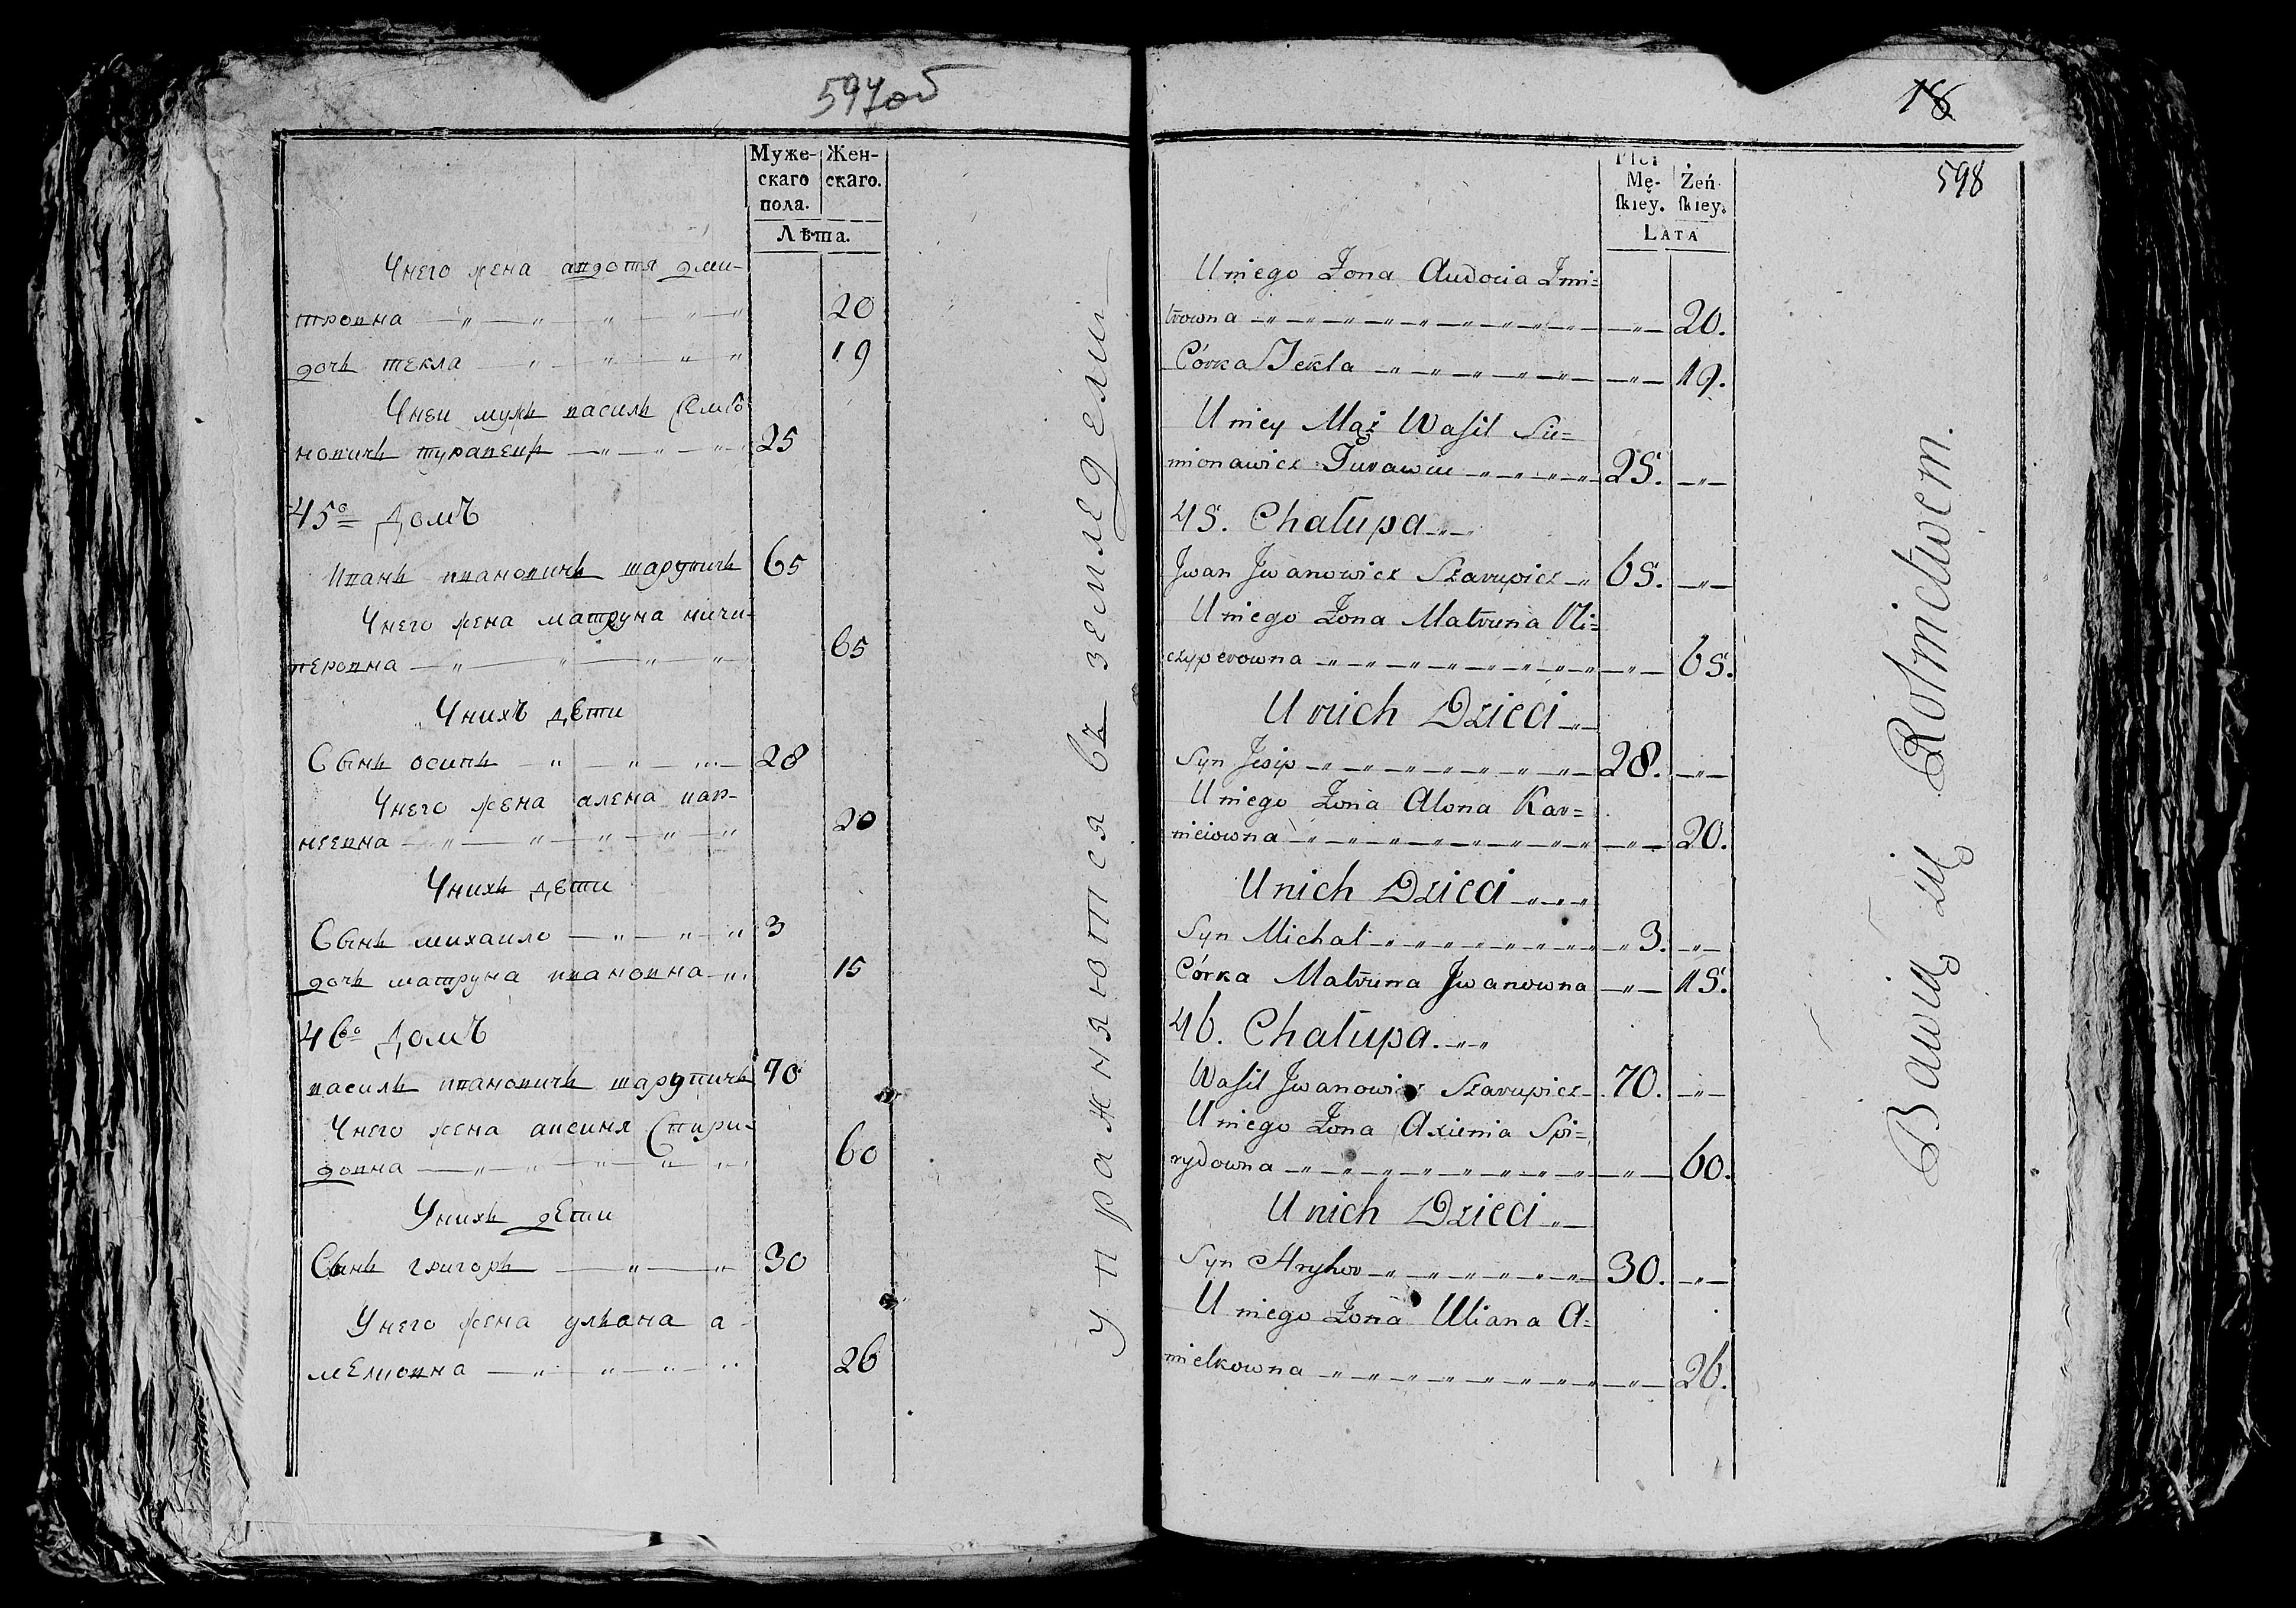 597об
Муже-
скаго
пола.
Жен-
скаго.
Лѣта.
Унего жена авдотя дми-
тровна 20
дочь текла 19
Унеи мужъ василь Семіо
новичъ туравецъ 25
45о Домъ
Иванъ ивановичъ шарупичъ 65
Унего жена матруна ничи-
перовна 65
Унихъ дети
Сынъ осипъ 28
Унего жена алена кар-
неевна 20
Унихъ дети
Сынъ михаило 3
дочь матруна ивановна 15
46о Домъ
василь ивановичъ шарупичъ 70
Унего жена аксиня Спири-
довна 60
Унихъ дети
Сынъ григоръ 30
Унего жена ульана а-
мелковна 26
упражняются въ земледелии
18
598
Płci
Mę-
skiey.
Żeń-
skiey.
LATA
Uniego Żona Audocia Dmi=
trowna 20.
Córka Tekla 19.
Uniey Mąż Wasil Sie=
mionawicz Turawiec 25.
45. Chałupa
Jwan Jwanowicz Szarupicz 65.
Uniego Żona Matruna Ni=
czyperowna 65.
Unich Dzieci
Syn Jesip 28.
Uniego Żona Alona Kar=
nieiowna 20.
Unich Dzieci
Syn Michał 3.
Córka Matruna Jwanowna 15.
46. Chałupa.
Wasil Jwanowicz Szarupicz 70.
Uniego Żona Axienia Spi=
rydowna 60.
Unich Dzieci
Syn Hryhor 30.
Uniego Żona Uliana A=
mielkowna 26.
Bawią się Rolnictwem.